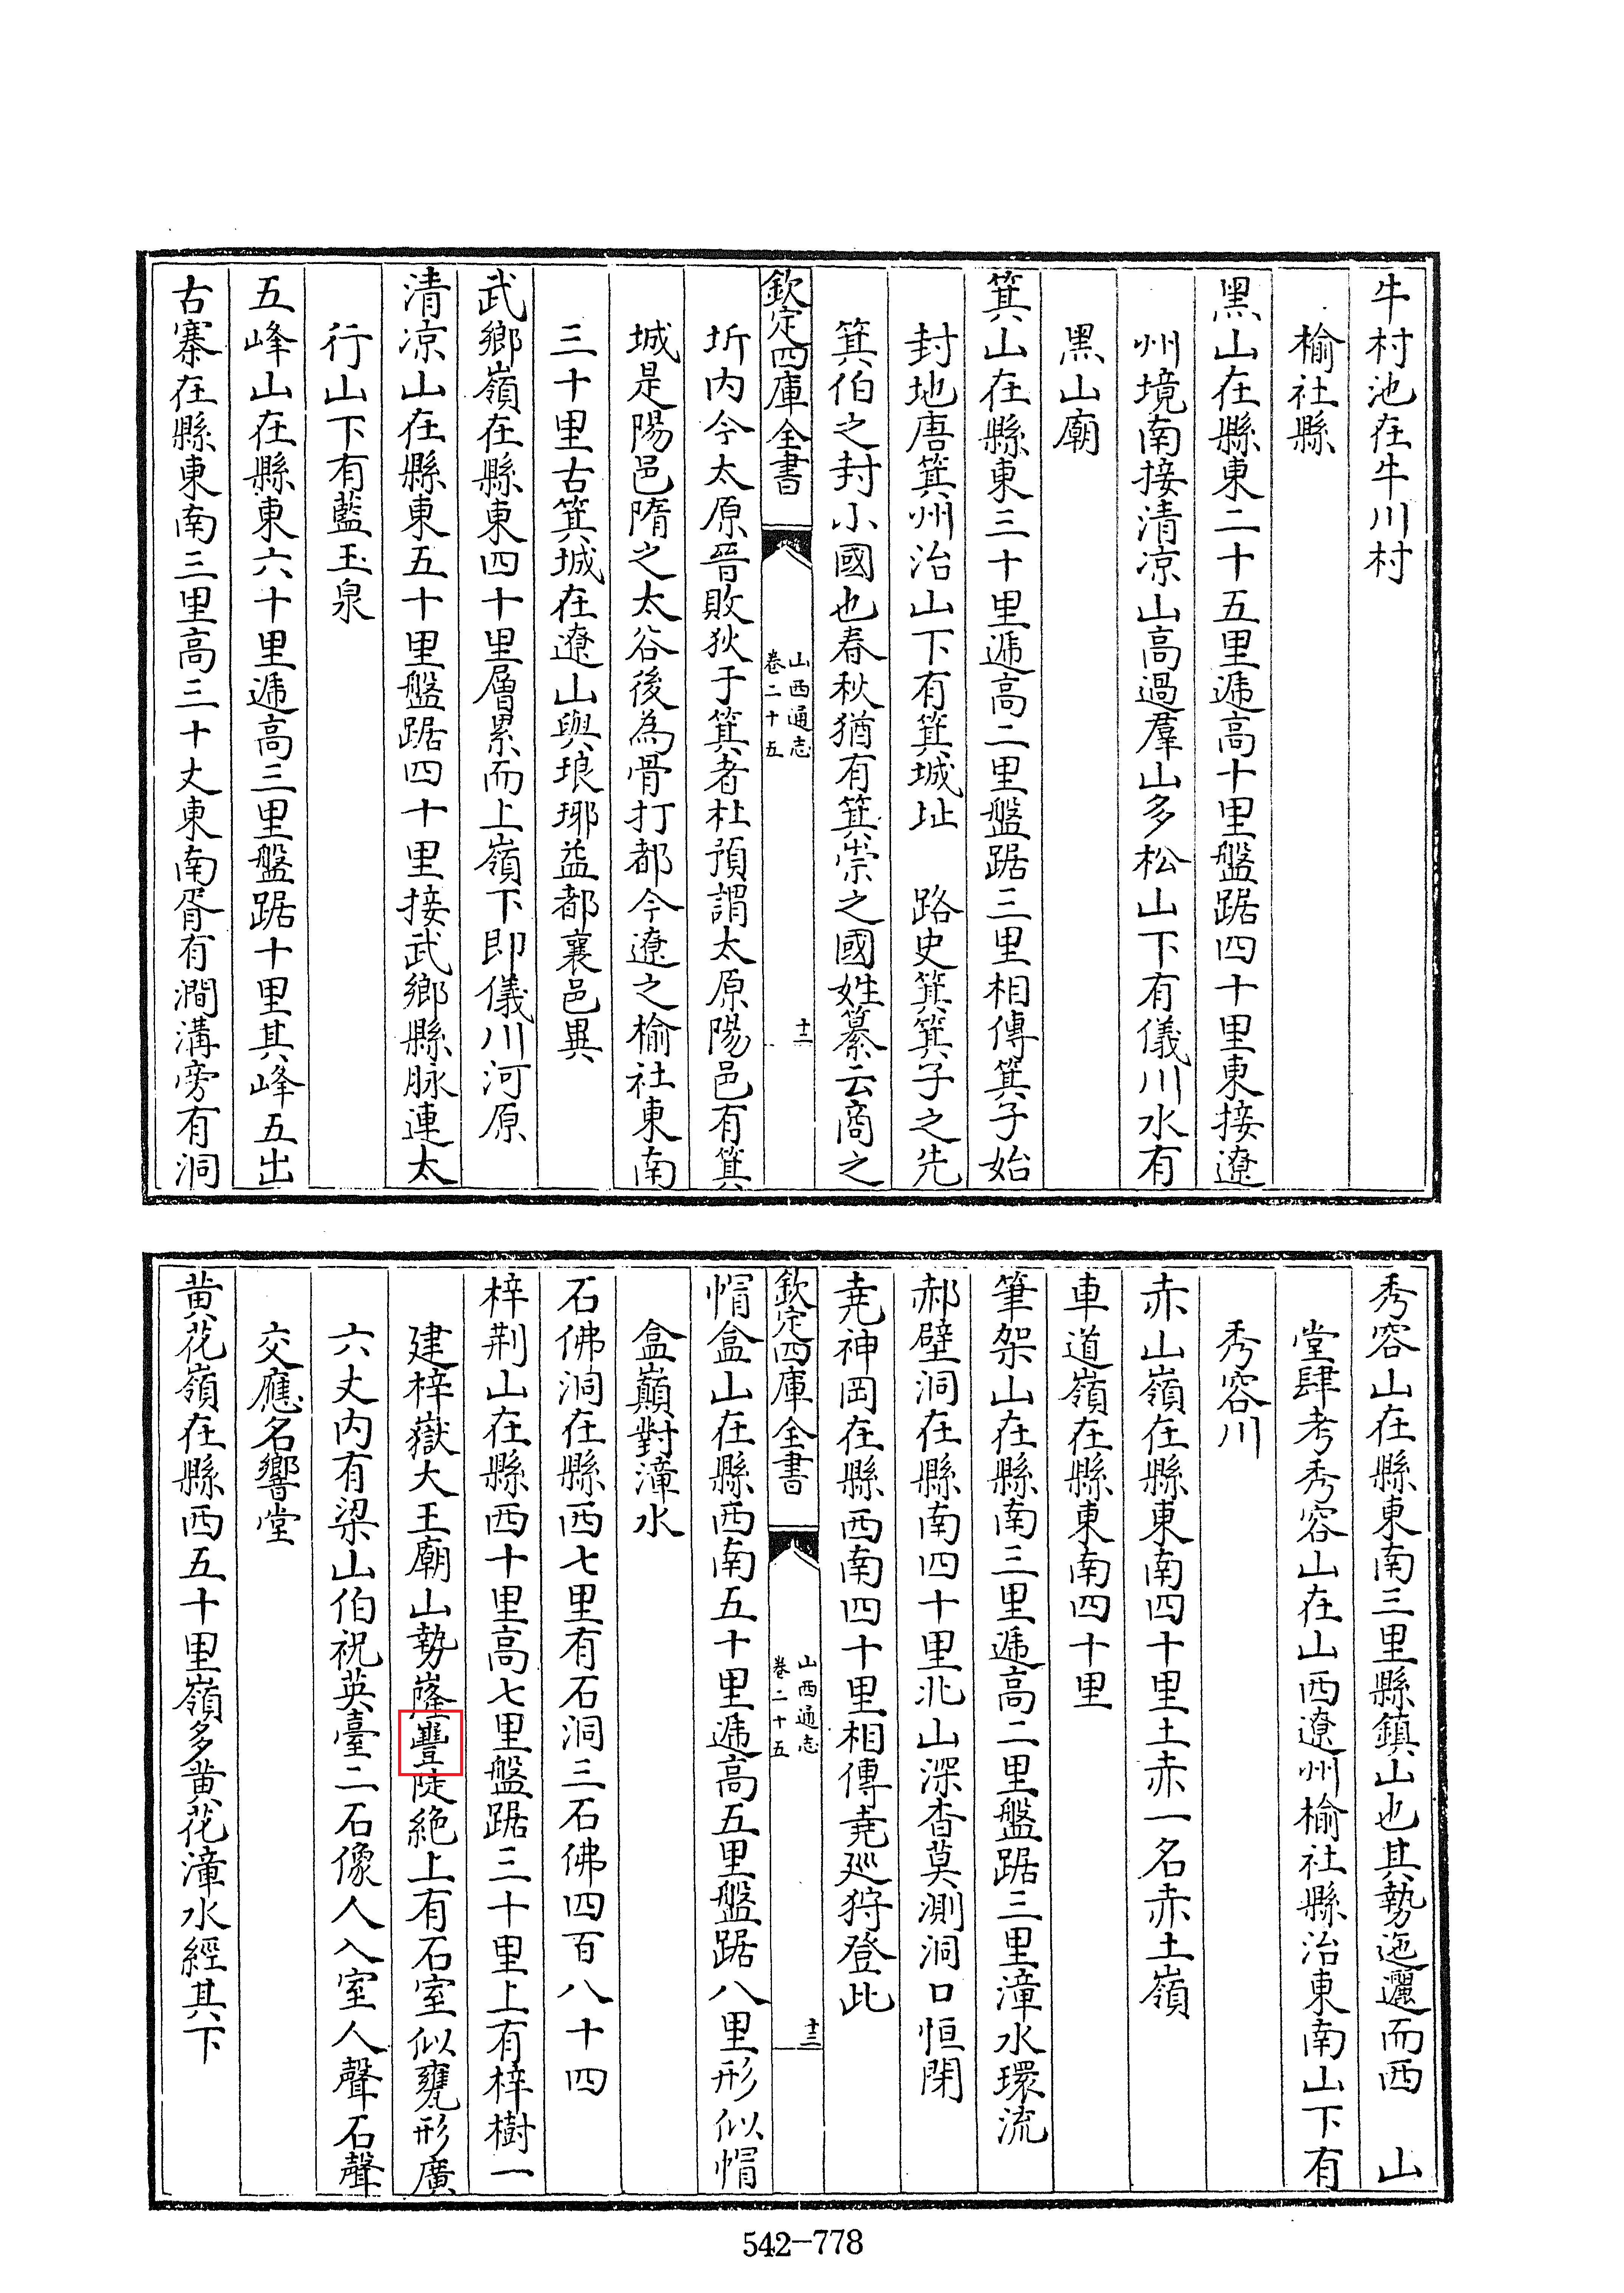 牛村池在牛川村
榆社縣
黑山在縣東二十五里遞高十里盤踞四十里東接遼
州境南接清涼山高過羣山多松山下有儀川水有
黑山廟
箕山在縣東三十里遞高二里盤踞三里相傳箕子始
封地唐箕州治山下有箕城址　路史箕箕子之先
箕伯之封小國也春秋猶有箕崇之國姓纂云商之
欽定四庫全書
山西通志
卷二十五
十二
圻内今太原晉敗狄于箕者杜預謂太原陽邑有箕
城是陽邑隋之太谷後為骨打都今遼之榆社東南
三十里古箕城在遼山與琅琊益都襄邑異
武鄉嶺在縣東四十里層累而上嶺下即儀川河原
清涼山在縣東五十里盤踞四十里接武鄉縣脉連太
行山下有藍玉泉
五峰山在縣東六十里遞高三里盤踞十里其峰五出
古寨在縣東南三里高三十丈東南胥有澗溝旁有洞
秀容山在縣東南三里縣鎮山也其勢迤邐而西　山
堂肆考秀容山在山西遼州榆社縣治東南山下有
秀容川
赤山嶺在縣東南四十里土赤一名赤土嶺
車道嶺在縣東南四十里
筆架山在縣南三里遞高二里盤踞三里漳水環流
郝壁洞在縣南四十里北山深杳莫測洞口恒閉
堯神岡在縣西南四十里相傳堯廵狩登此
欽定四庫全書
山西通志
卷二十五
十三
帽盒山在縣西南五十里遞高五里盤踞八里形似帽
盒巔對漳水
石佛洞在縣西七里有石洞三石佛四百八十四
梓荆山在縣西十里高七里盤踞三十里上有梓樹一
建梓嶽大王廟山勢嶐豐陡絶上有石室似甕形廣
六丈内有梁山伯祝英臺二石像人入室人聲石聲
交應名響堂
黄花嶺在縣西五十里嶺多黄花漳水經其下
542-778